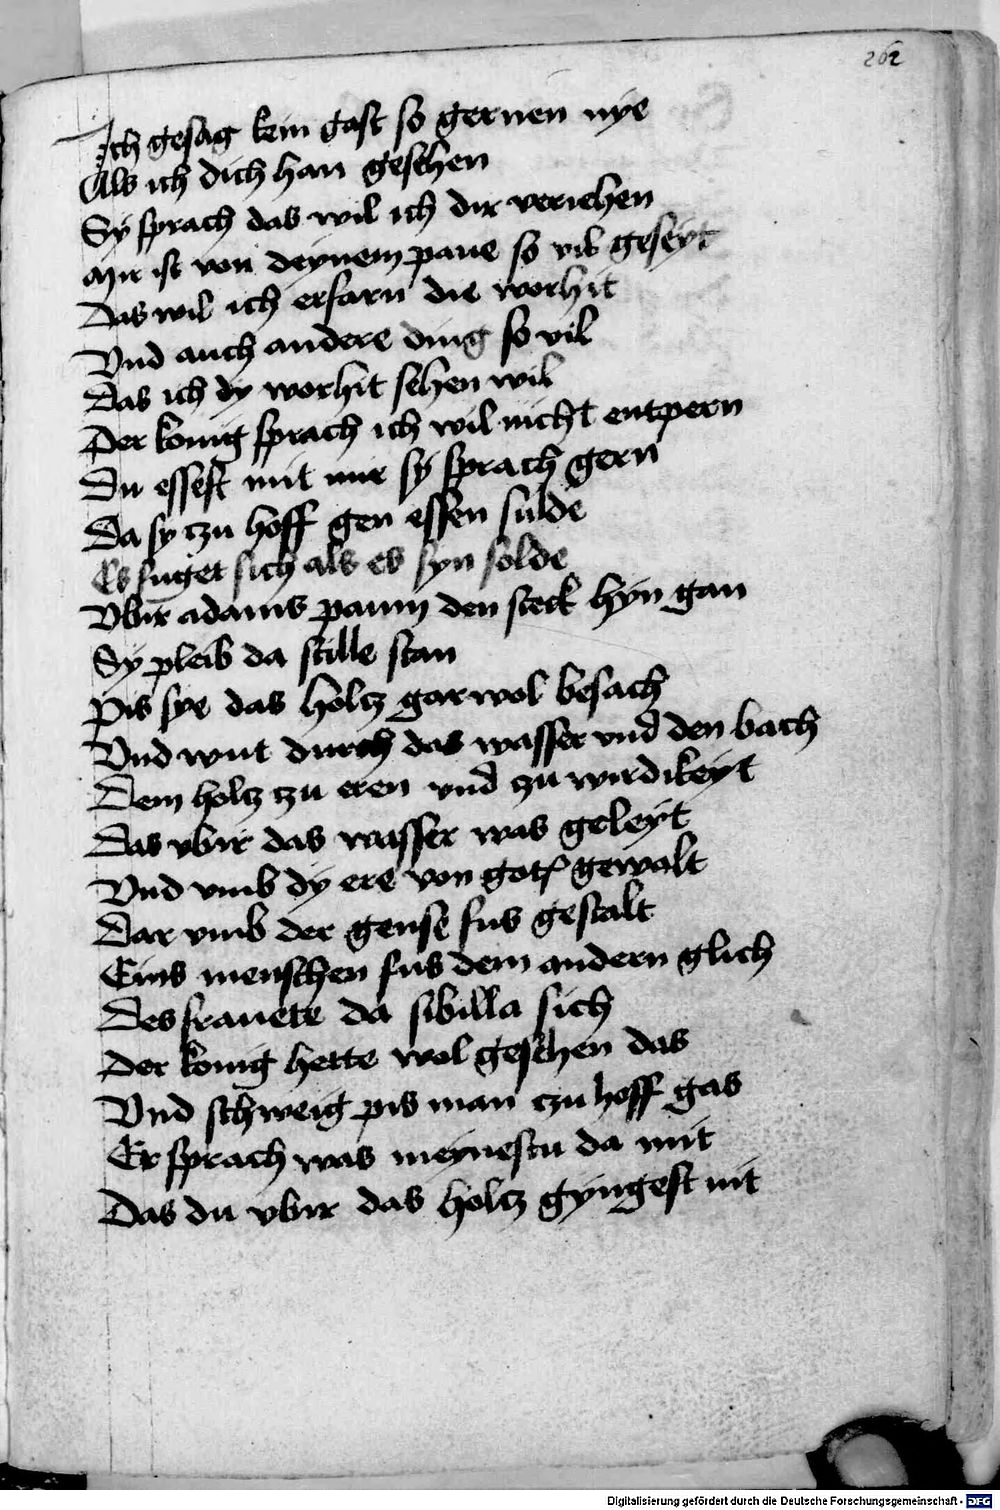 262
Ich gesag kein gast so gernen nye
Als ich dich han gesehen
Sy sprach das wil ich dir veriehen
Mir ist von deynem paue so vil geseyt
Das wil ich erfarn die worhit
Vnd auch andere ding so vil
Das ich dy worhit sehen wil
Der konig sprach ich wil nicht entpern
Du essest mit mir sy sprach gern
Da sy czu hoff gen essen sulde
Es fuget sich als es syn solde
Vbir adams paum den steck hyn gan
Sy pleib da stille stan
Pis sye das holcz gar wol besach
Vnd wut durch das wasser vnd den bach
Dem holcz czu eren vnd czu wirdikeyt
Das vbir das wasser was geleyt
Vnd vmb dy ere von gotz gewalt
Dar vmb der gense fus gestalt
Eins menschen fus dem andern glich
Des frauete da sibilla sich
Der konig hette wol gesehen das
Vnd schweig pis man czu hoff gas
Er sprach was meynestu da mit
Das du vbir das holcz gyngest nit
Digitalisierung gefördert durch die Deutsche Forschungsgemeinschaft - DFG